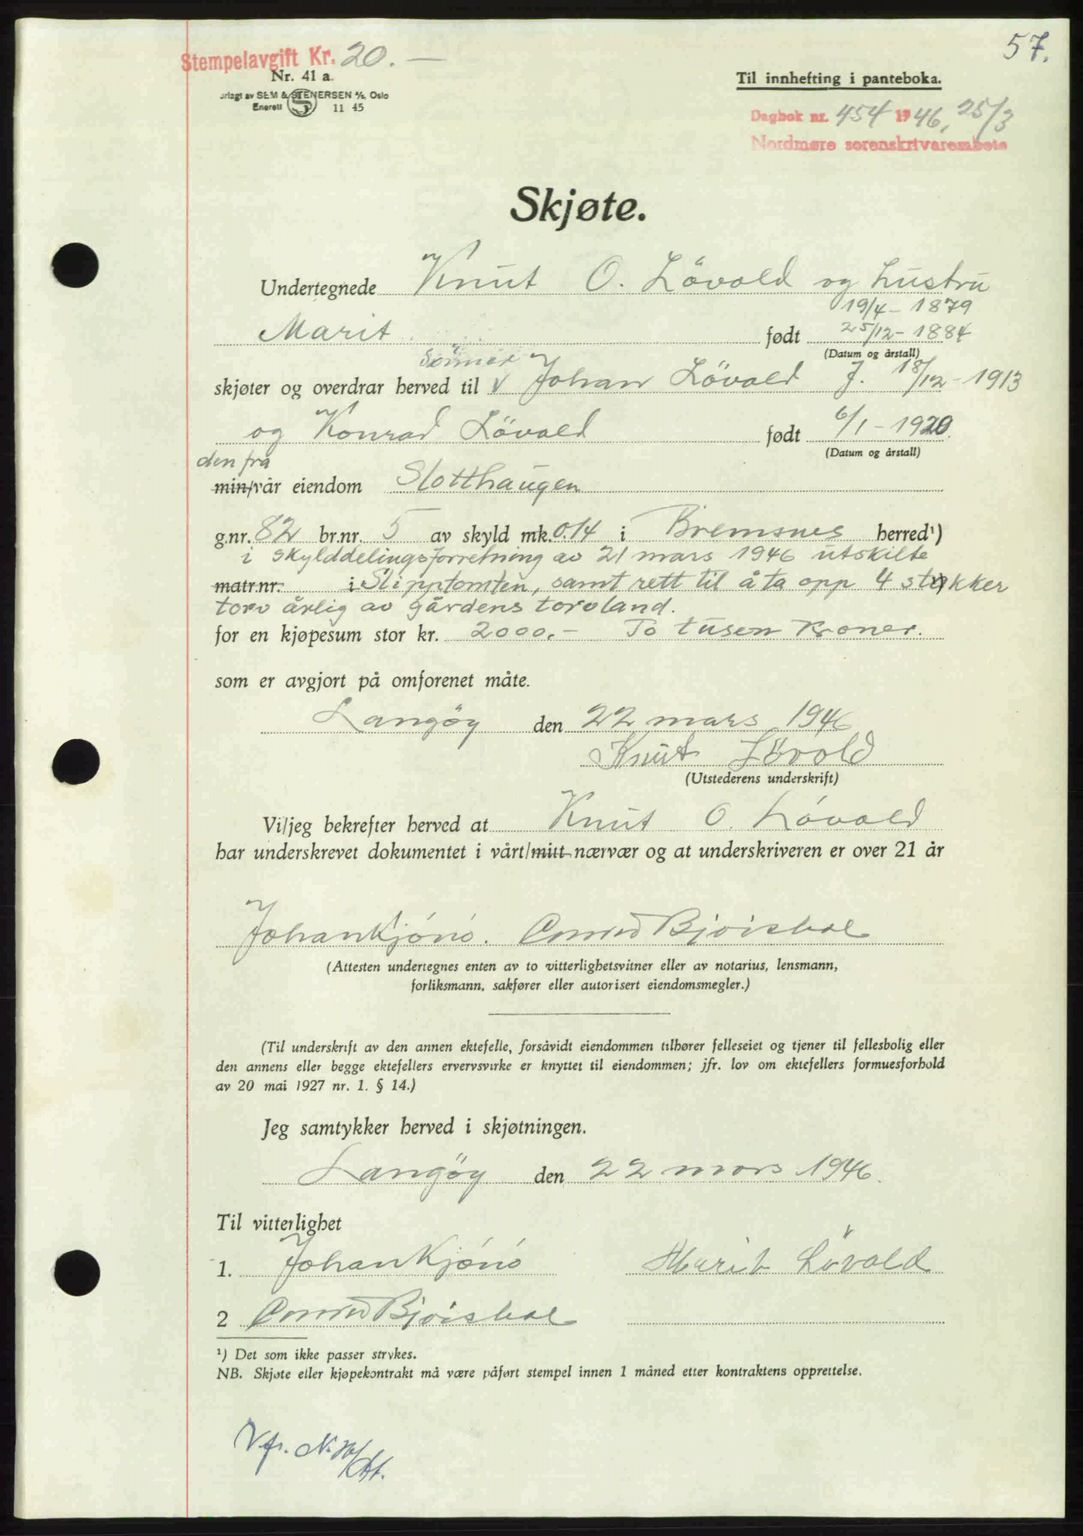 57.
Stempelavgift Kr. 20. —
Nr. 41 a.
SEM & STENERSEN A/S, Oslo
Enerett S 11 45
Til innhefting i panteboka.
Dagbok nr. 454 1946, 25/3
Nordmøre sorenskriverembete
Skjøte.
Undertegnede Knut O. Lövold og hustru
19/4 - 1879
Marit født 25/12 - 1884
(Datum og årstall)
Sönner
skjøter og overdrar herved til V Johan Lövold f. 18/12 - 1913
og Konrad Lövold født 6/1 - 1920.
(Datum og årstall)
den fra
min/vår eiendom Slotthaugen
g.nr. 82 br.nr. 5 av skyld mk. 0.14 i Bremsnes herred¹)
i skylddelingsforretning av 21 mars 1946 utskilte
matr.nr. i Slipptomten, samt rett til å ta opp 4 stykker
torv årlig av gårdens torvland.
for en kjøpesum stor kr. 2000,- To tusen Kroner.
som er avgjort på omforenet måte.
Langöy den 22 mars 1946
Knut Lövold
(Utstederens underskrift)
Vi/jeg bekrefter herved at Knut O. Lövold
har underskrevet dokumentet i vårt/mitt nærvær og at underskriveren er over 21 år
Johan Kjönö.
(Attesten undertegnes enten av to vitterlighetsvitner eller av notarius, lensmann,
forliksmann, sakfører eller autorisert eiendomsmegler.)
(Til underskrift av den annen ektefelle, forsåvidt eiendommen tilhører felleseiet og tjener til fellesbolig eller
den annens eller begge ektefellers ervervsvirke er knyttet til eiendommen; jfr. lov om ektefellers formuesforhold
av 20 mai 1927 nr. 1. § 14.)
Jeg samtykker herved i skjøtningen.
Langöy den 22 mars 1946.
Til vitterlighet
1. Johan Kjönö Marit Lövold
2
¹) Det som ikke passer strykes.
NB. Skjøte eller kjøpekontrakt må være påført stempel innen 1 måned etter kontraktens opprettelse.